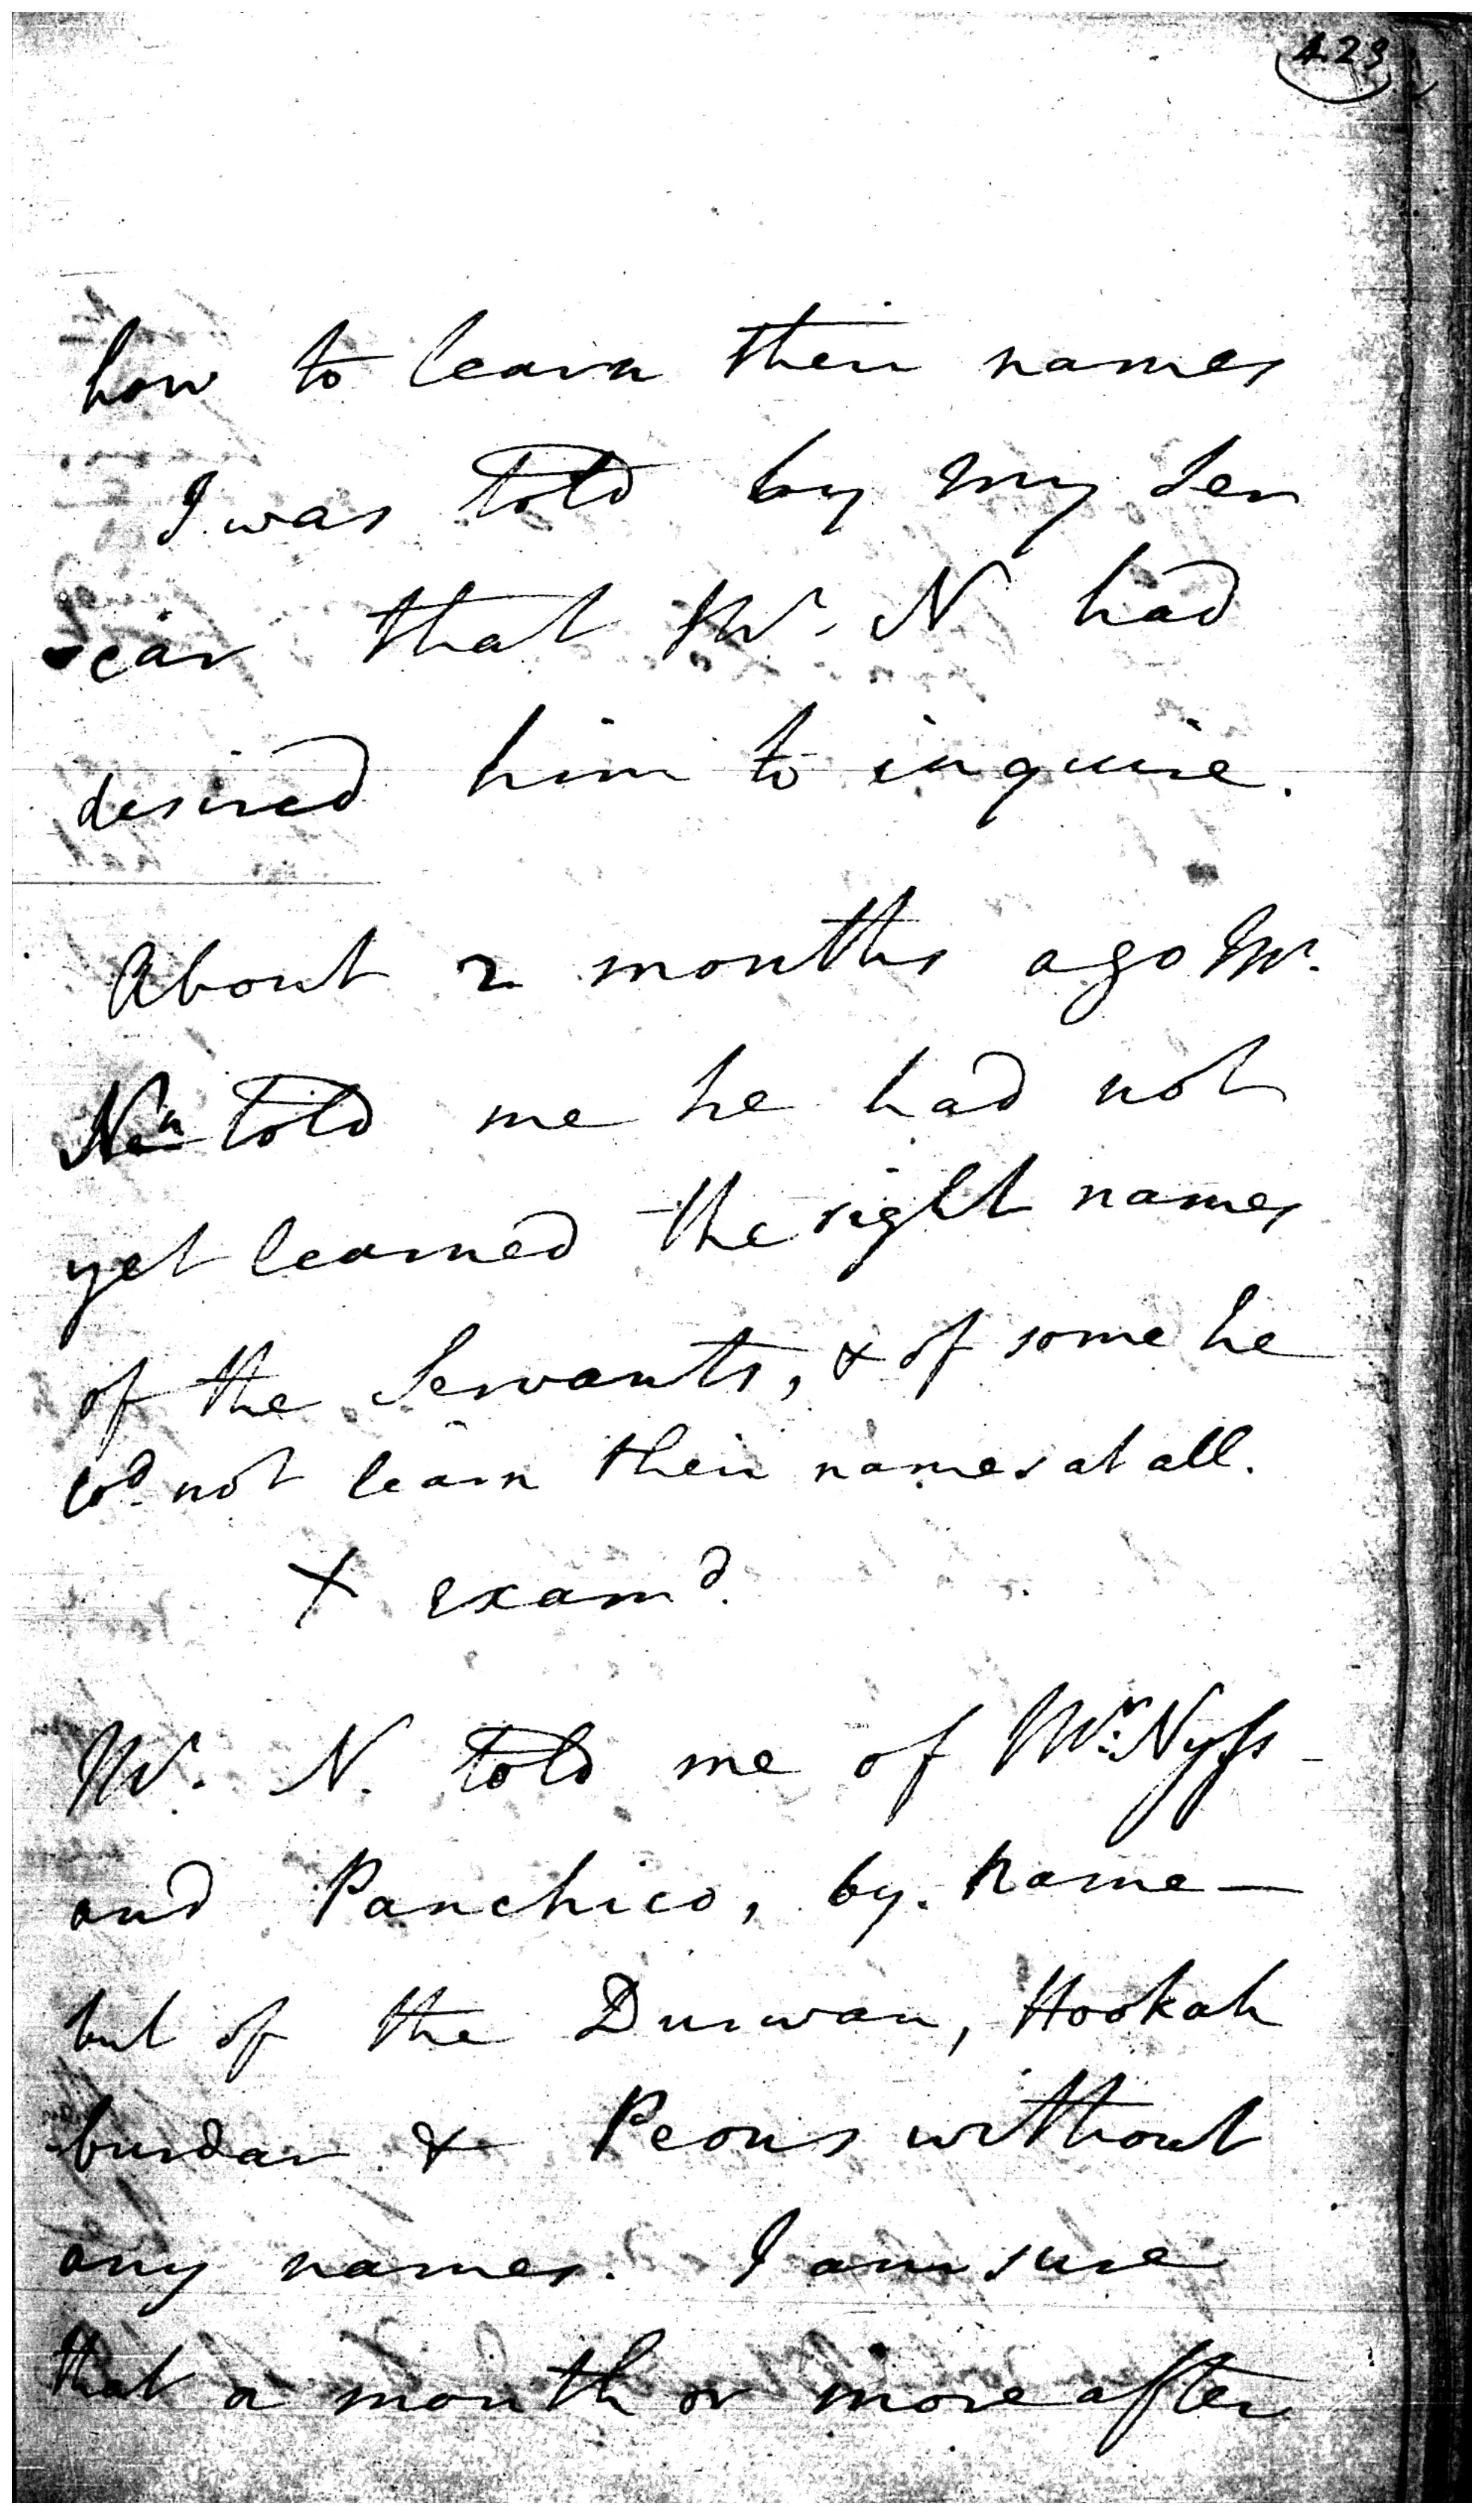 423
how to learn their names
I was told by my Ser
-car that Mr. N had
desired him to inquire.
About 2 months ago Mr.
Nn told me he had not
yet learned the right names
of the Servants, & of some he
cod. not learn their names at all.
X examd.
Mr. N. told me of Mr. Nyss
and Panchico, by name—
but of the Durwan, Hookah
-burdar & Peons without
any names. I am sure
that a month or more after